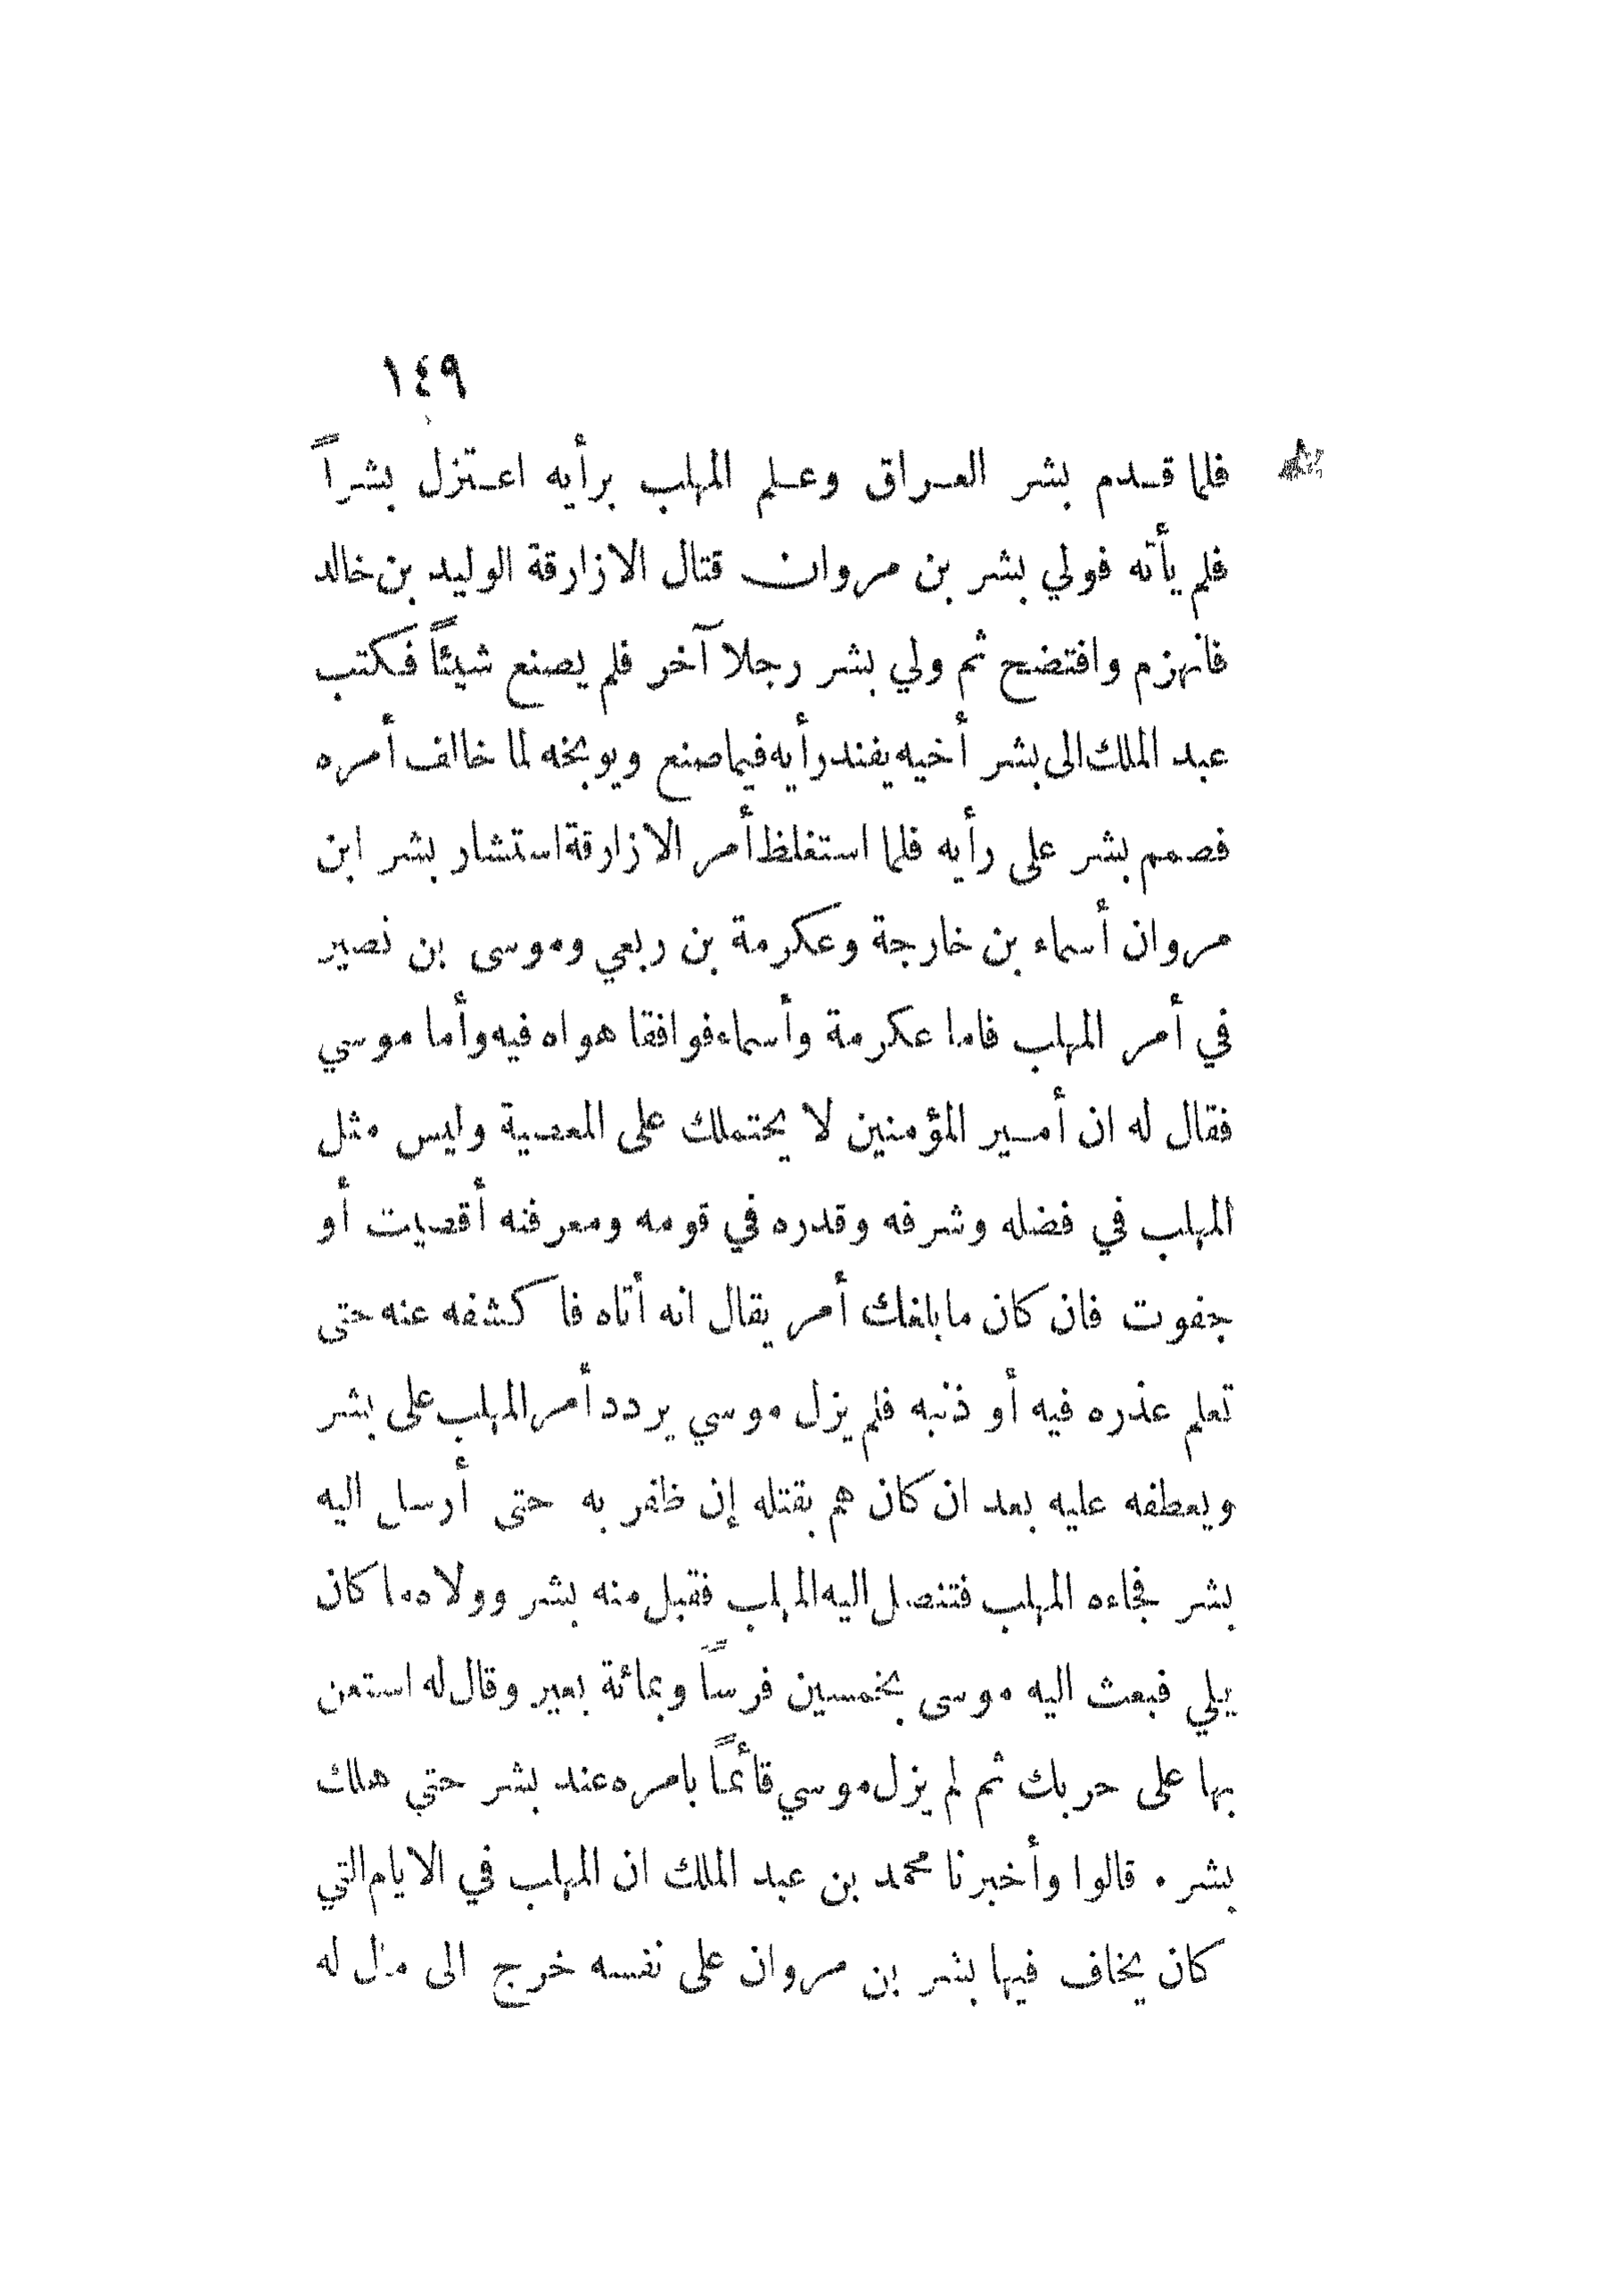 ١٤٩
فلما قدم بشر العراق وعلم المهلب برأيه اعتزل بشراً
فلم يأته فولي بشر بن مروان قتال الازارقة الوليد بن خالد
فانهزم وافتضح ثم ولي بشر رجلا آخر فلم يصنع شيئاً فكتب
عبد الملك الى بشر أخيه يفند رأيه فيما صنع ويوبخه لما خالف أمره
فصمم بشر على رأيه فلما استغلظ أمر الازارقة استشار بشر ابن
مروان أسماء بن خارجة وعكرمة بن ربعي وموسى بن نصير
في أمر المهلب فاما عكرمة وأسماء فوافقا هواه فيه وأما موسي
فقال له ان أمير المؤمنين لا يحتملك على المعصية وليس مثل
المهلب في فضله وشرفه وقدره في قومه ومعرفته أقصيت أو
جفوت فان كان ما بلغك أمر يقال انه أتاه فاكشفه عنه حتى
تعلم عذره فيه أو ذنبه فلم يزل موسي يردد أمر المهلب على بشر
ويعطفه عليه بعد ان كان هم بقتله إن ظفر به حتى أرسل اليه
بشر فجاءه المهلب فتنصل اليه المهلب فقبل منه بشر وولاه ما كان
يلي فبعث اليه موسى بخمسين فرساً وبمائة بعير وقال له استعن
بها على حربك ثم لم يزل موسي قائماً بامره عند بشر حتي هلك
بشر . قالوا وأخبرنا محمد بن عبد الملك ان المهلب في الايام التي
كان يخاف فيها بشر بن مروان على نفسه خرج الى مال له